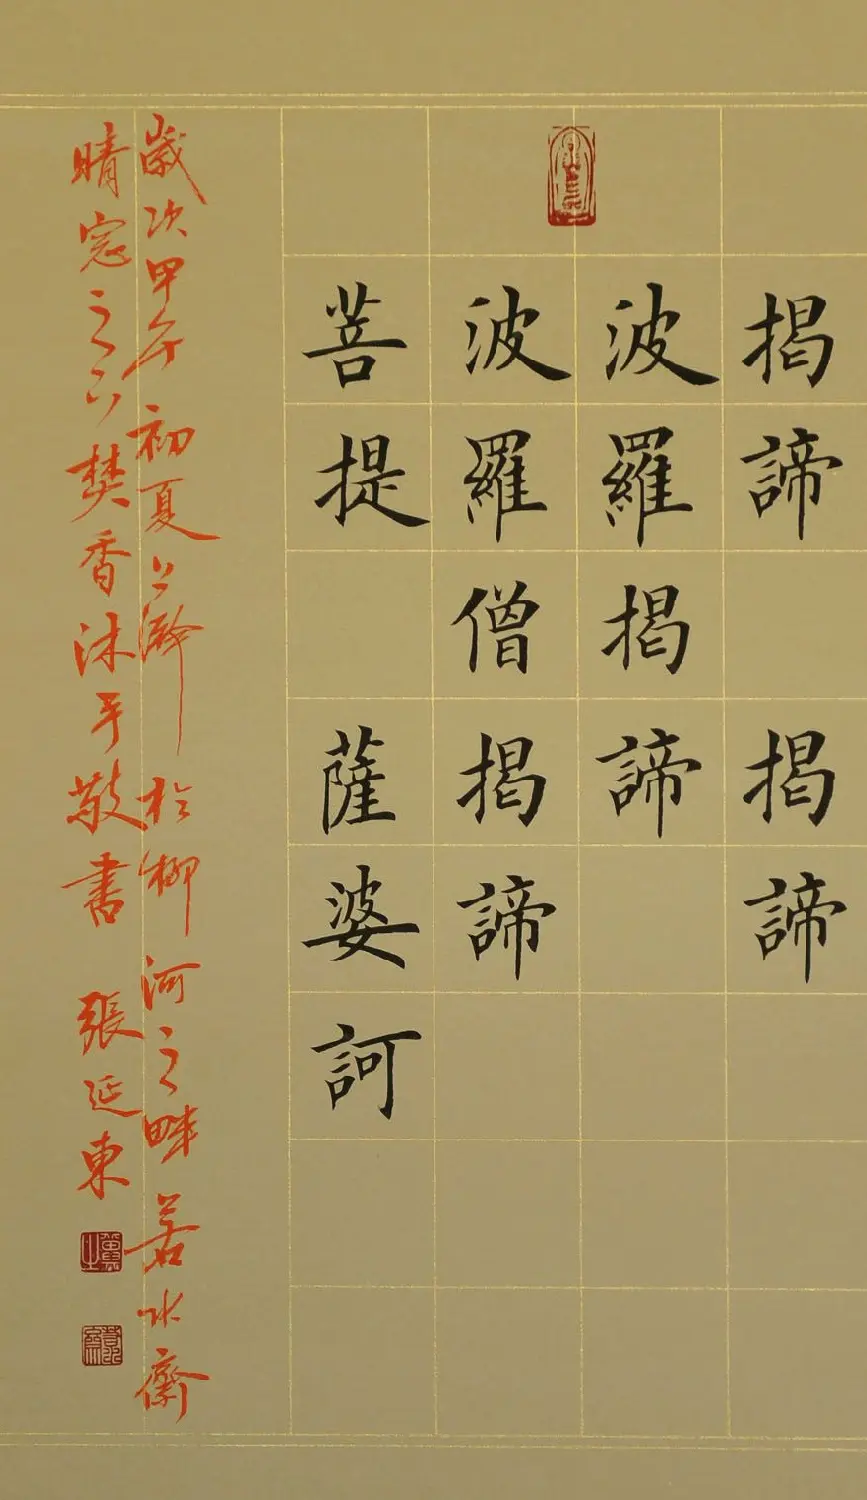 揭諦 揭諦
波羅揭諦
波羅僧揭諦
菩提 薩婆訶
歲次甲午初夏上澣於柳河之畔若水齋
晴窓之下焚香沐手敬書 張延東